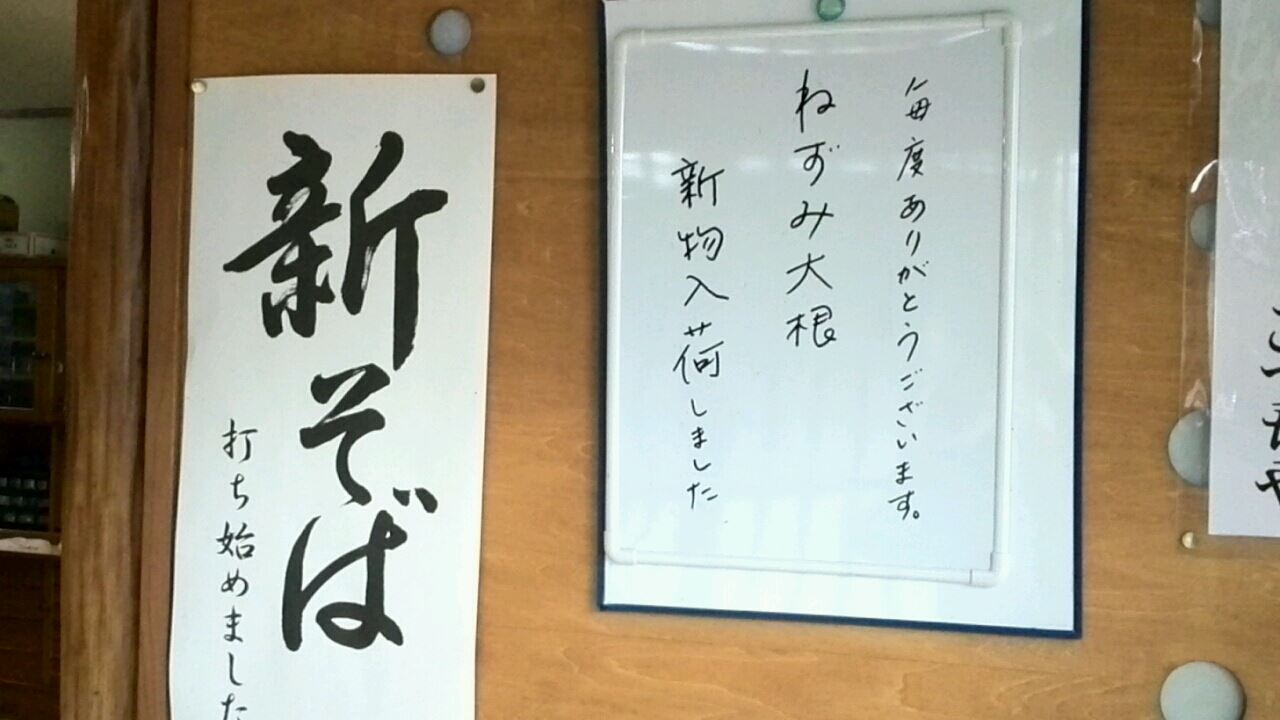 毎度ありがとうございます。
ねずみ大根
新物入荷しました
新そば
打ち始めました